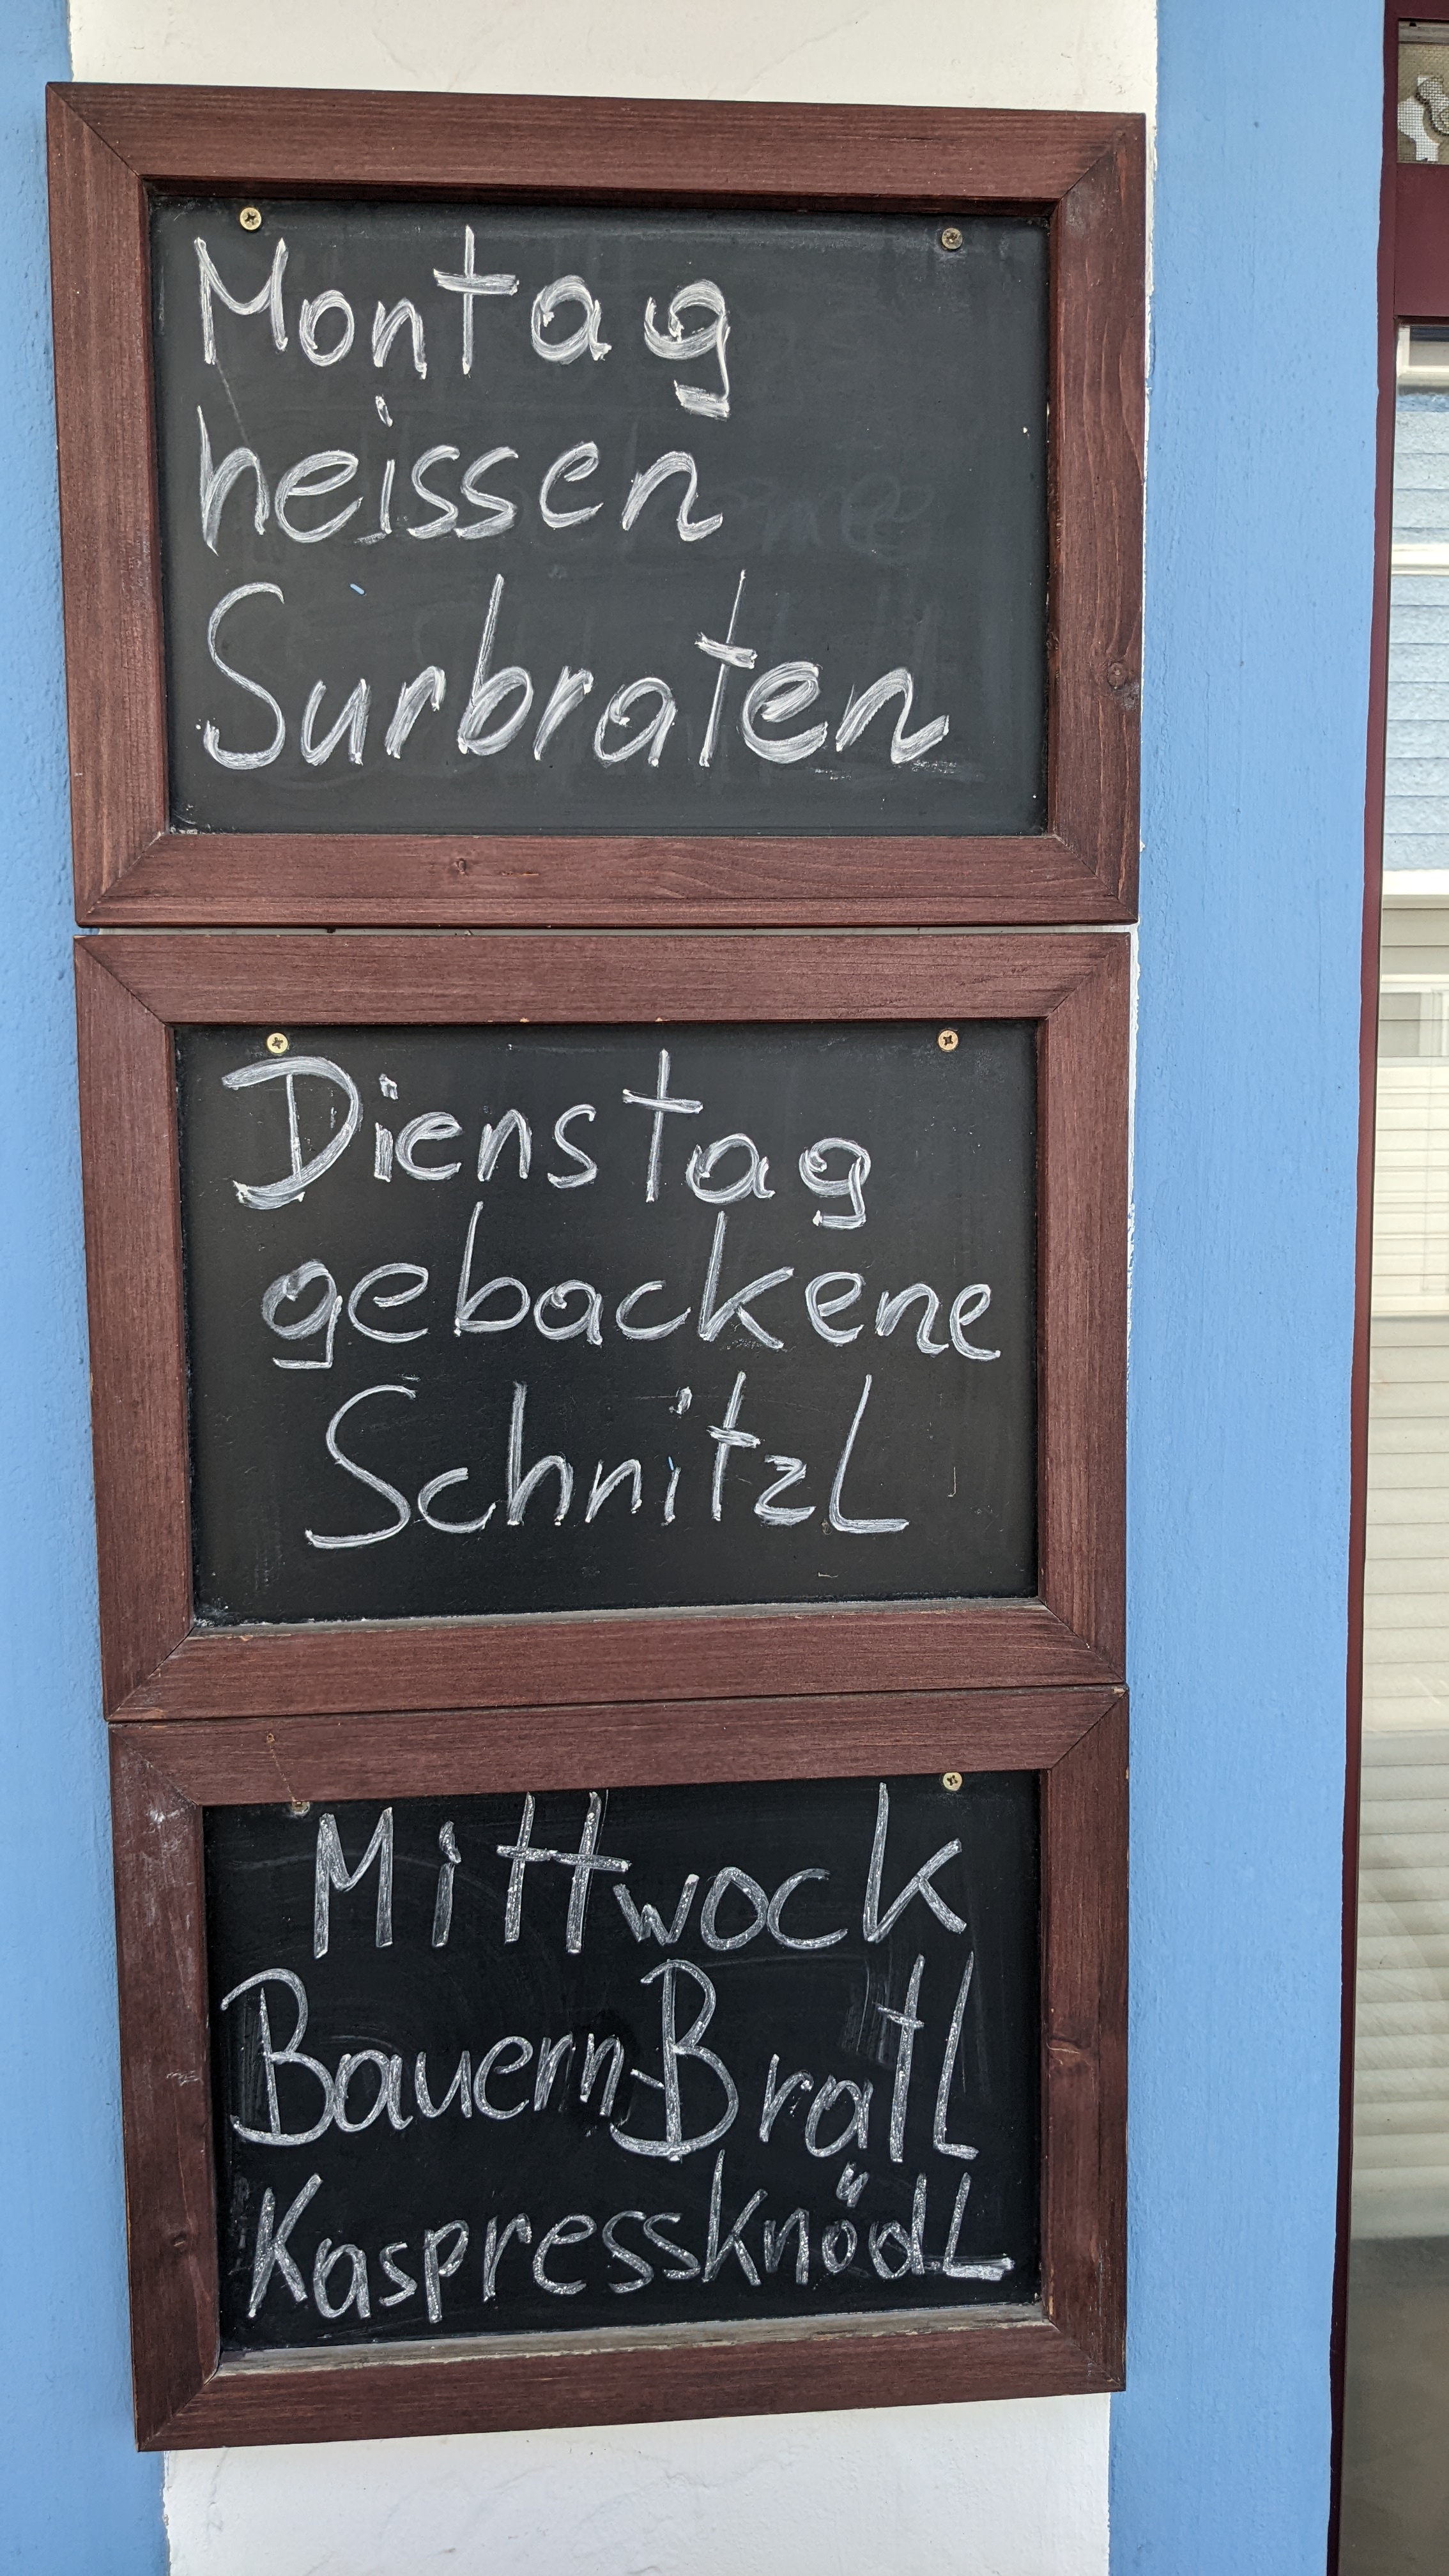 Montag
heissen
Surbraten
Dienstag
gebackene
Schnitzl
Mittwock
Bauern-Bratl
Kaspressknödl